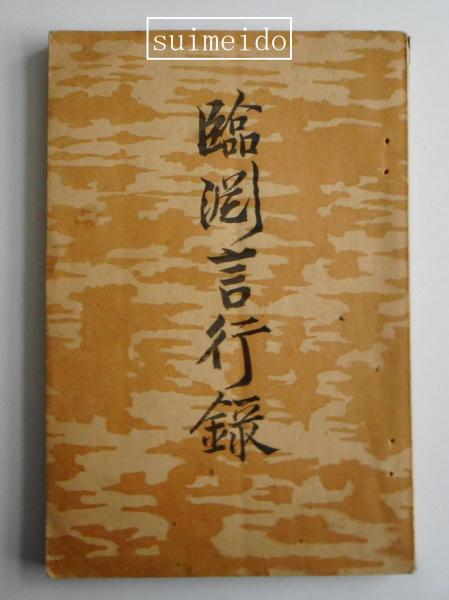 suimeido
臨渕言行録